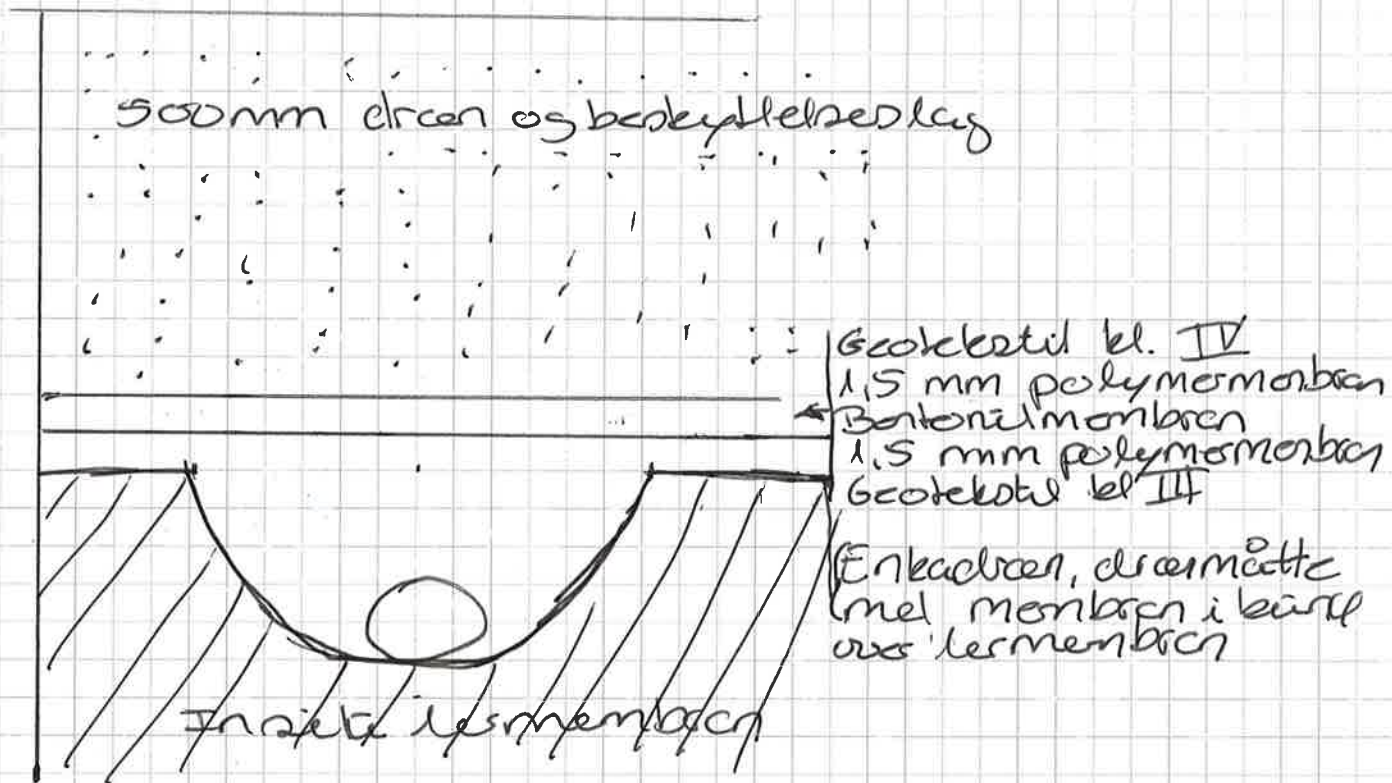 500mm dræn og beskyttelseslag
Geotekstil kl. IV
1,5 mm polymermembran
Bentonitmembran
1,5 mm polymermembran
Geotekstil kl III
(Enkadræn, drænmåtte
med membran i bund
over lermembran
In situ lermembran